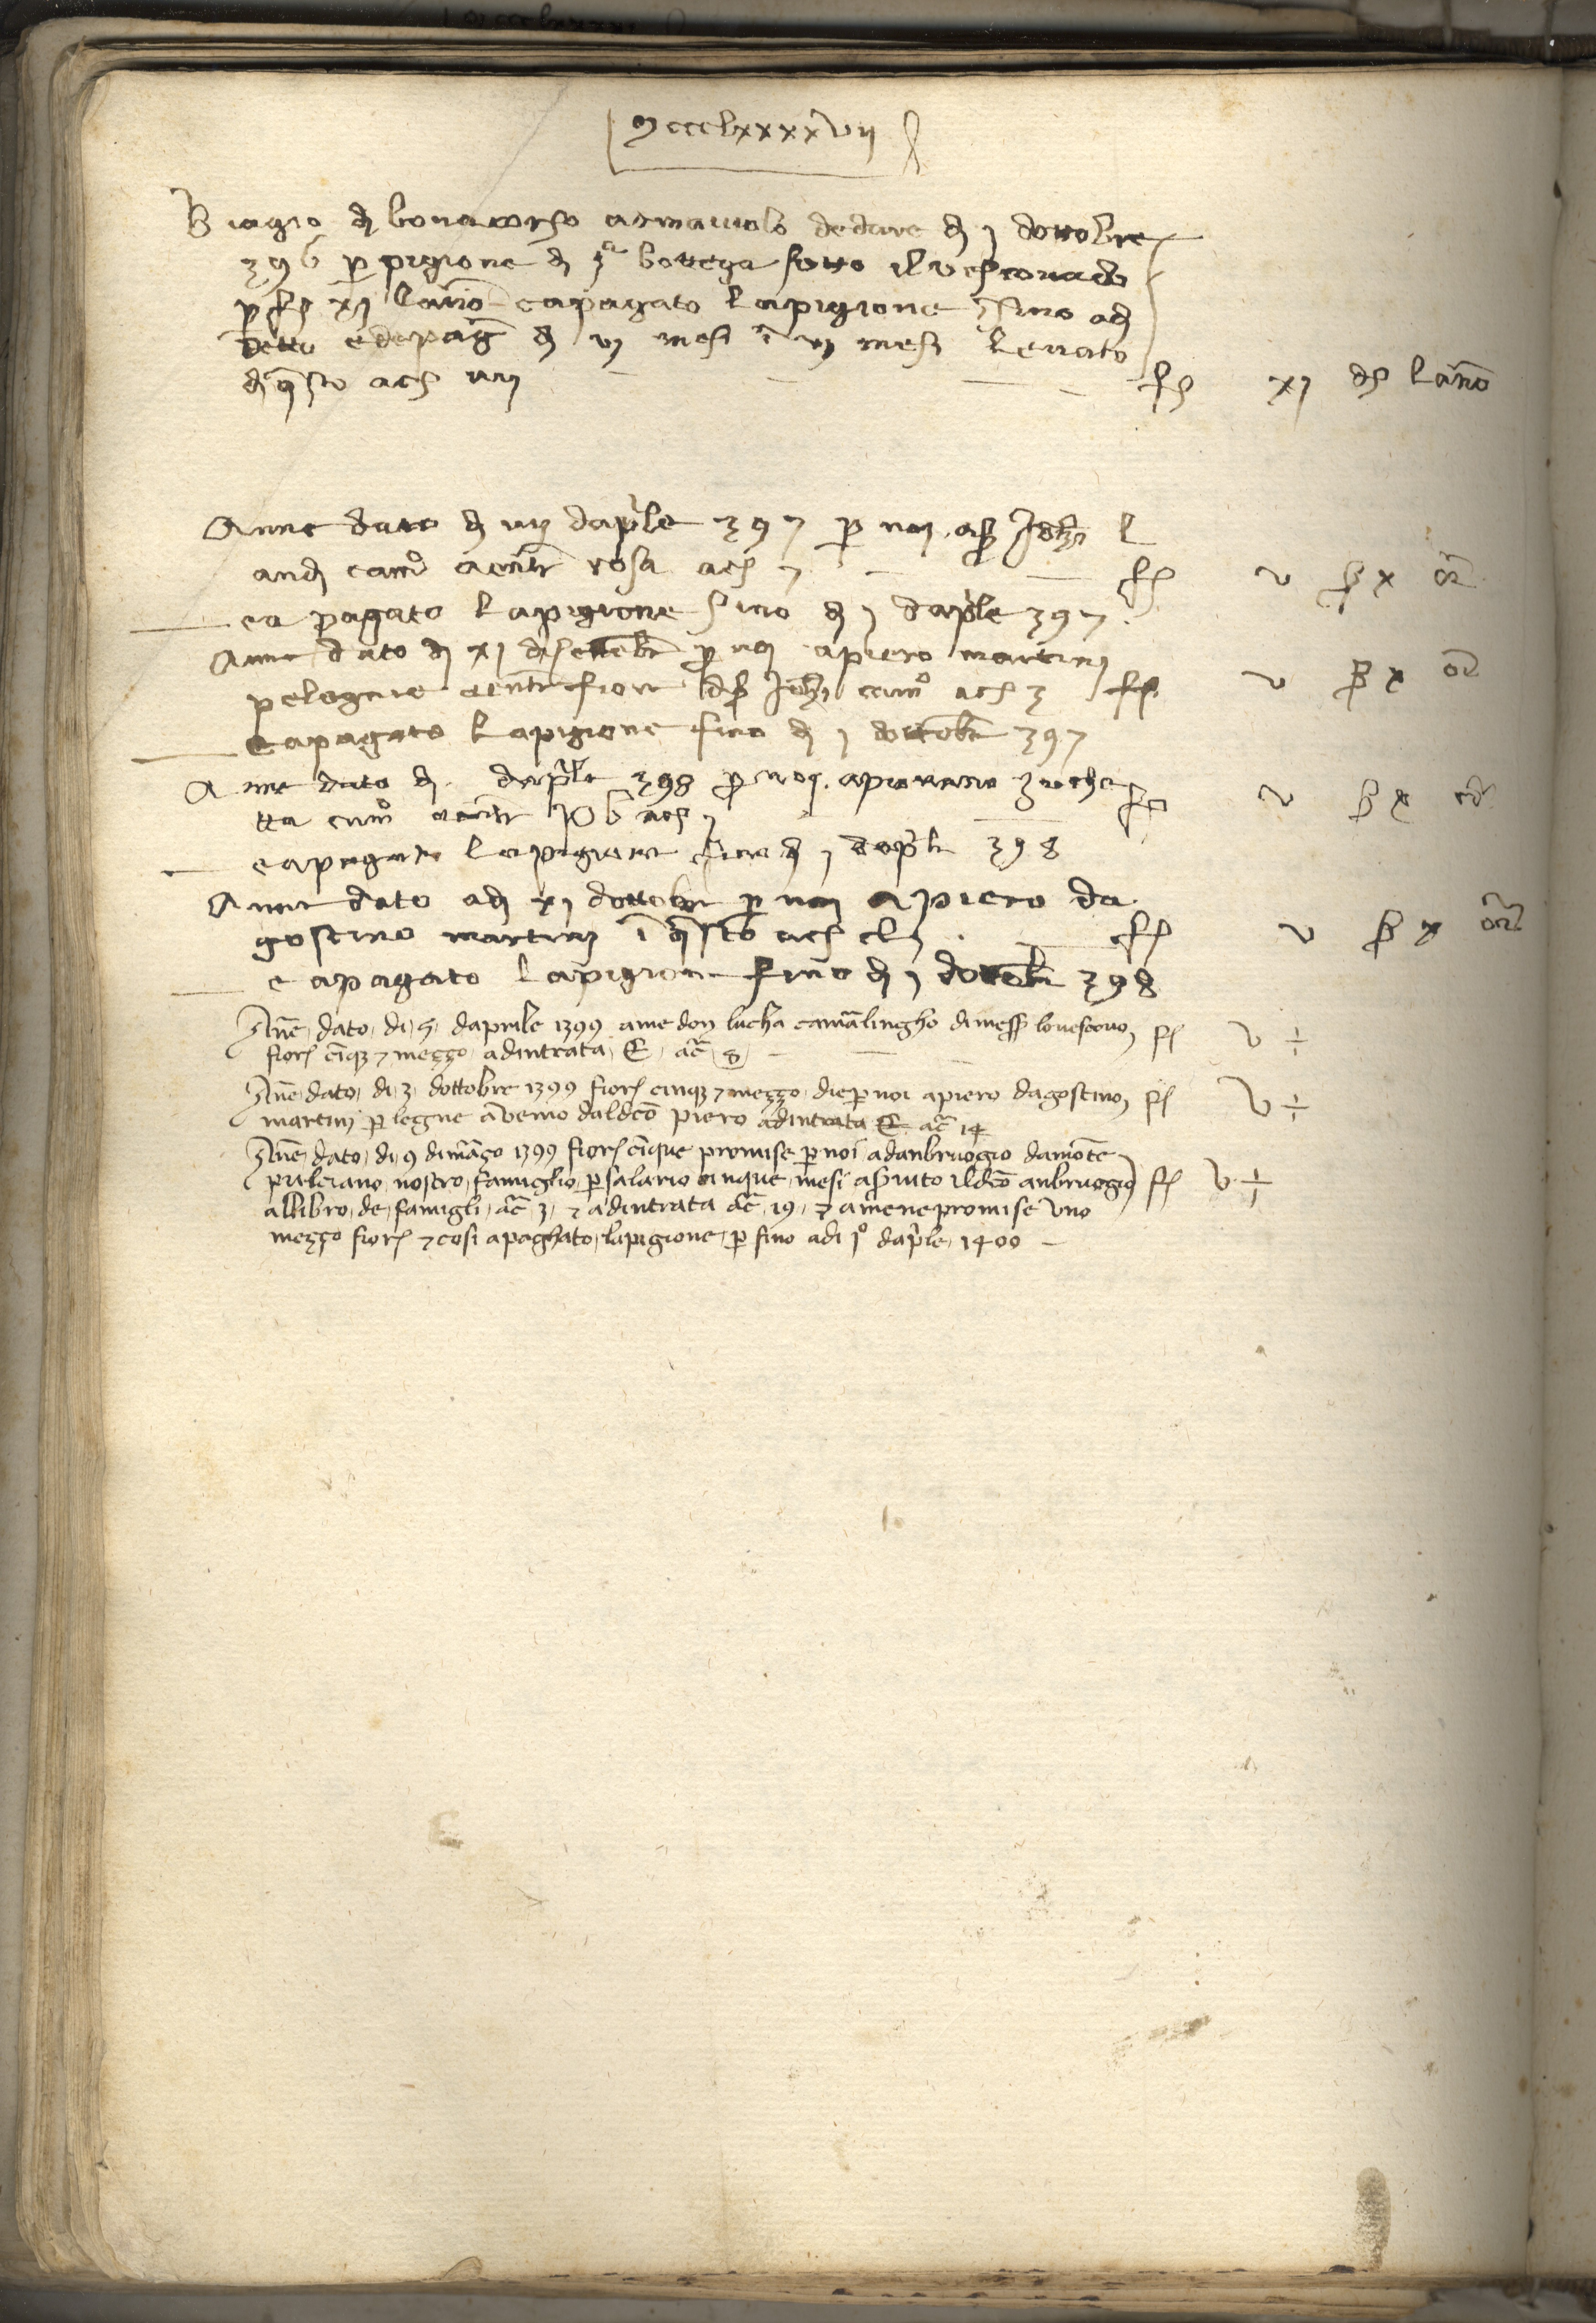 Mccclxxxxvij
Biagio di bonacorso armaiuolo de dare di j dottobre
396 p pigione di jª bottega sotto il vescovado
p fs xj lanno e a pagato la pigione jsino adj
detto e de pagē di vj mesi ī vj mesi levato
di qsto acs
fs xj ds lanō
Anne dato di daprile 397 p noi
cam° aentr rosa acs 7
fs v s x or
e a pagato la pigione sino di j daprile 397
Anne dato di xj disettēbr p noi a piero martinj
p elegnie aentr fior cam° acs 3 fs v s x or
e a pagato la pigione sino di j dottobr 397
Anne dato di daprile 398 p noi a
tta cam° aentr acs j fs v s x or
e a pagato la pigione sino di j daprile 398
Anne dato adj xj dottobr p noi a piero da
gostino martinj ī qsto acs fs v s x or
e a pagato la pigione sino di j dottobr 398
Ane dato di 5 daprile 1399 a me don lucha camālingho di mess lo vescovo fs v ÷
fiors cīq 7 mezzo ad intrata E ac 8
Ane dato di 3 dottobre 1399 fiors cinq 7 mezzo die p noi a piero dagostino fs v ÷
martinj p legne avemo dal dcō piero ad intrata E ac 14
Ane dato di 9 di março 1399 fiors cīque promise p noi ad anbruogio damōte
pulciano nostro famiglio p salario cinque mesi a sruito il dcō anbruogio fs v ÷
al libro de famigli ac 3 7 ad intrata ac 19 7 a me ne promise uno
mezzo fiors 7 cosi a paghato la pigione p fino adi j° daprile 1400